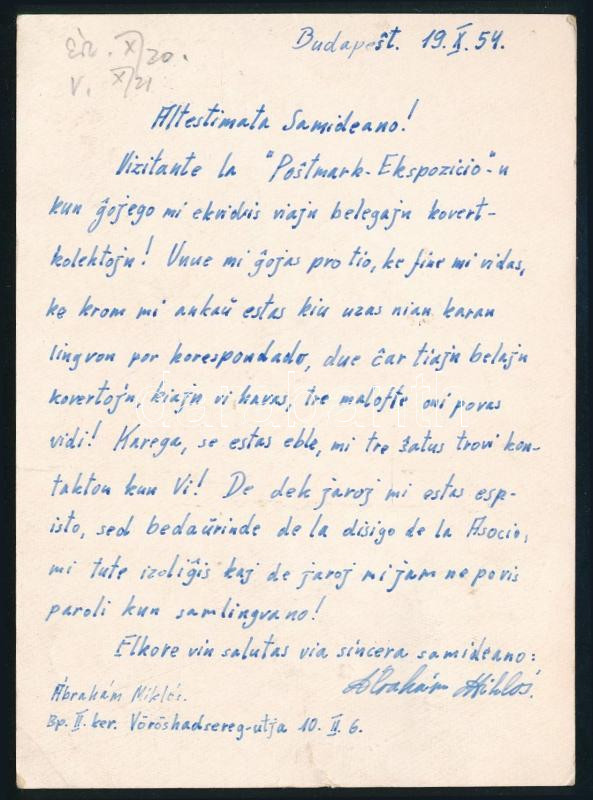 Érk. X/20.
V. X/21
Budapeŝt. 19.X.54.
Altestimata Samideano!
Vizitante la "Poŝtmark-Ekspozicio"-n
kun ĝojego mi ekvidis viajn belegajn kovert-
kolektojn! Unue mi ĝojas pro tio, ke fine mi vidas,
ke krom mi ankaŭ estas kiu uzas nian karan
lingvon por korespondado, due ĉar tiajn belajn
kovertojn, kiajn vi havas, tre malofte oni povas
vidi! Karega, se estas eble, mi tre ŝatus trovi kon-
takton kun Vi! De dek jaroj mi estas esp-
isto, sed bedaŭrinde de la disigo de la Asocio,
mi tute izoliĝis kaj de jaroj mi jam ne povis
paroli kun samlingvano!
Elkore vin salutas via sincera samideano:
Ábrahám Miklós.
Ábrahám Miklós.
Bp. II. ker. Vöröshadsereg-utja 10. II. 6.